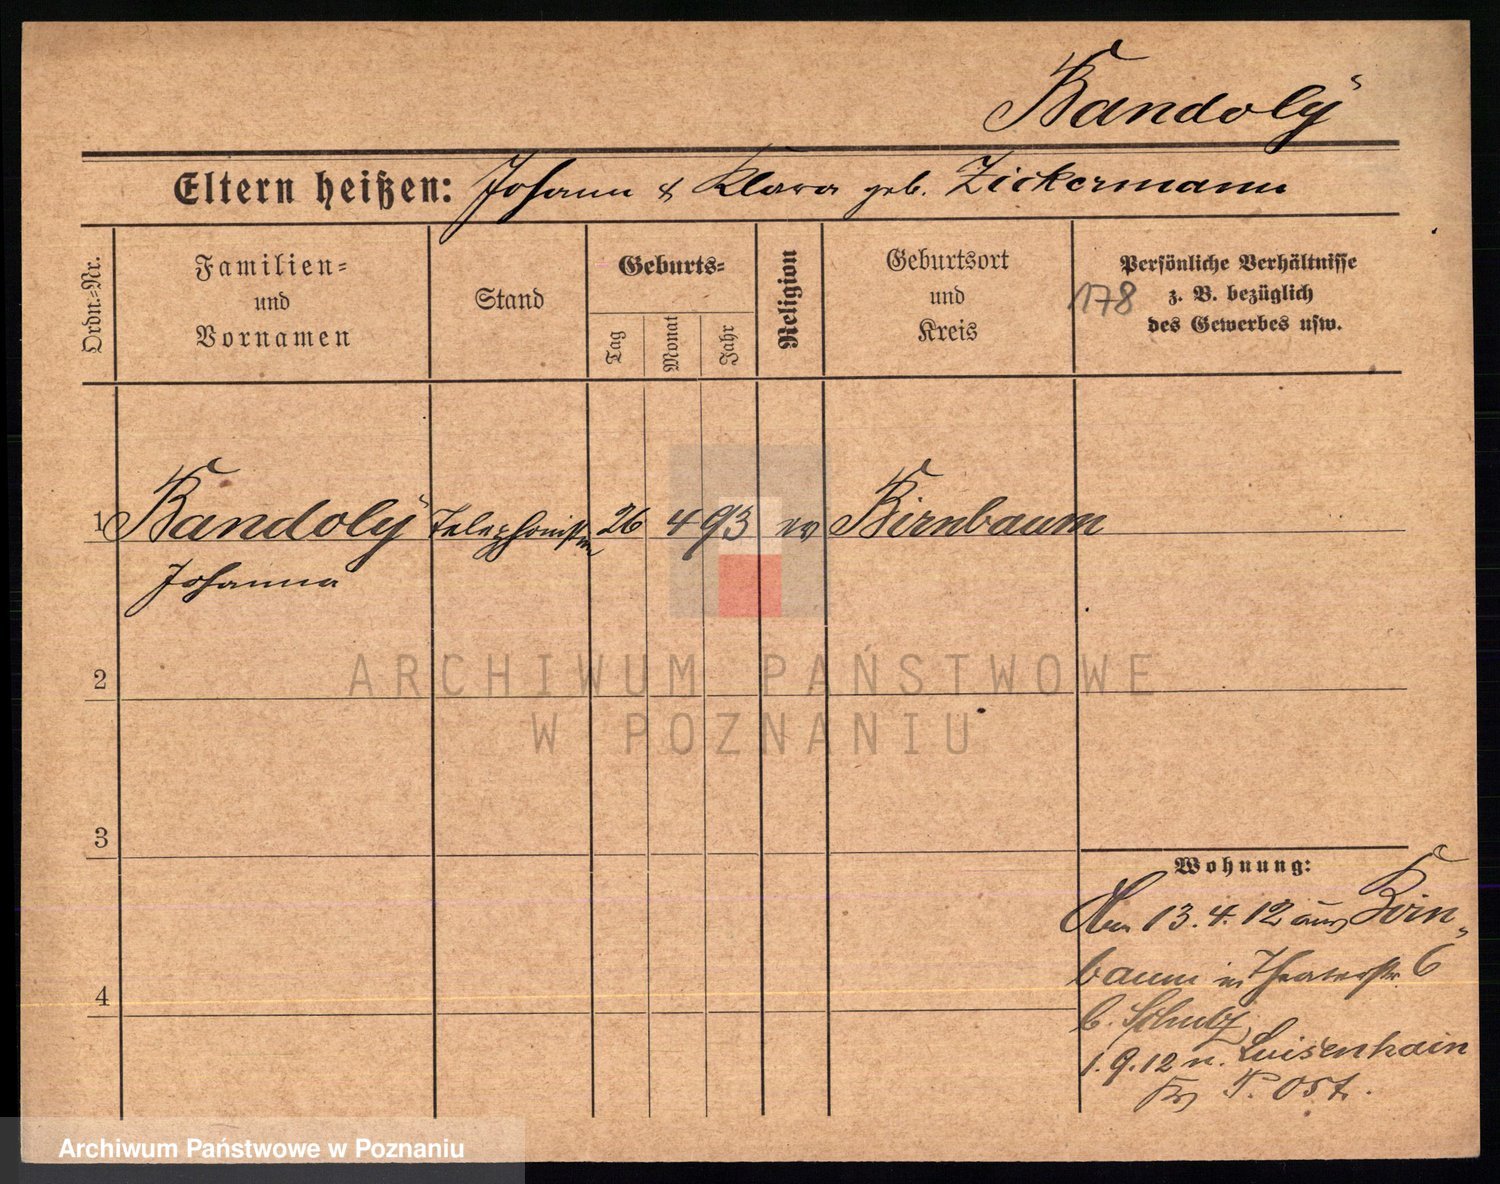 Bandoly
Eltern heißen: Johann & Klara geb. Zickermann
Ordn.-Nr.
Familien- und Vornamen
Stand
Geburts-
Tag
Monat
Jahr
Religion
Geburtsort und Kreis
Persönliche Verhältnisse
z. B. bezüglich
des Gewerbes usw.
178
1 Bandoly Telephonistin 26 4 93 ev Birnbaum
Johanna
2
ARCHIWUM PAŃSTWOWE
W POZNANIU
3
Wohnung:
Am 13.4.12 aus Birn-
baum in Theaterstr. 6
b. Schulz
4
1.9.12 n. Luisenhain
Krs P. Ost.
Archiwum Państwowe w Poznaniu